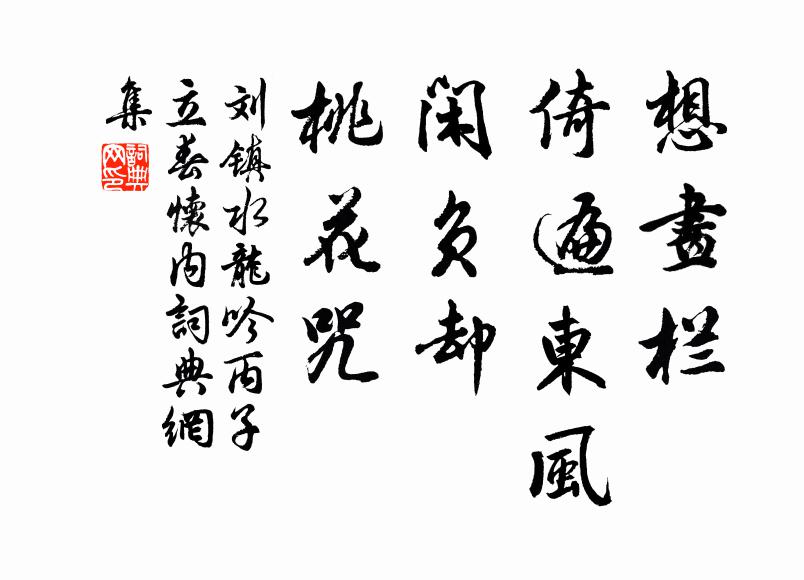 想畫栏
倚遍東風
閑負却
桃花咒
刘镇水龍吟丙子
立春懷内詞典網
集
詞典
网印